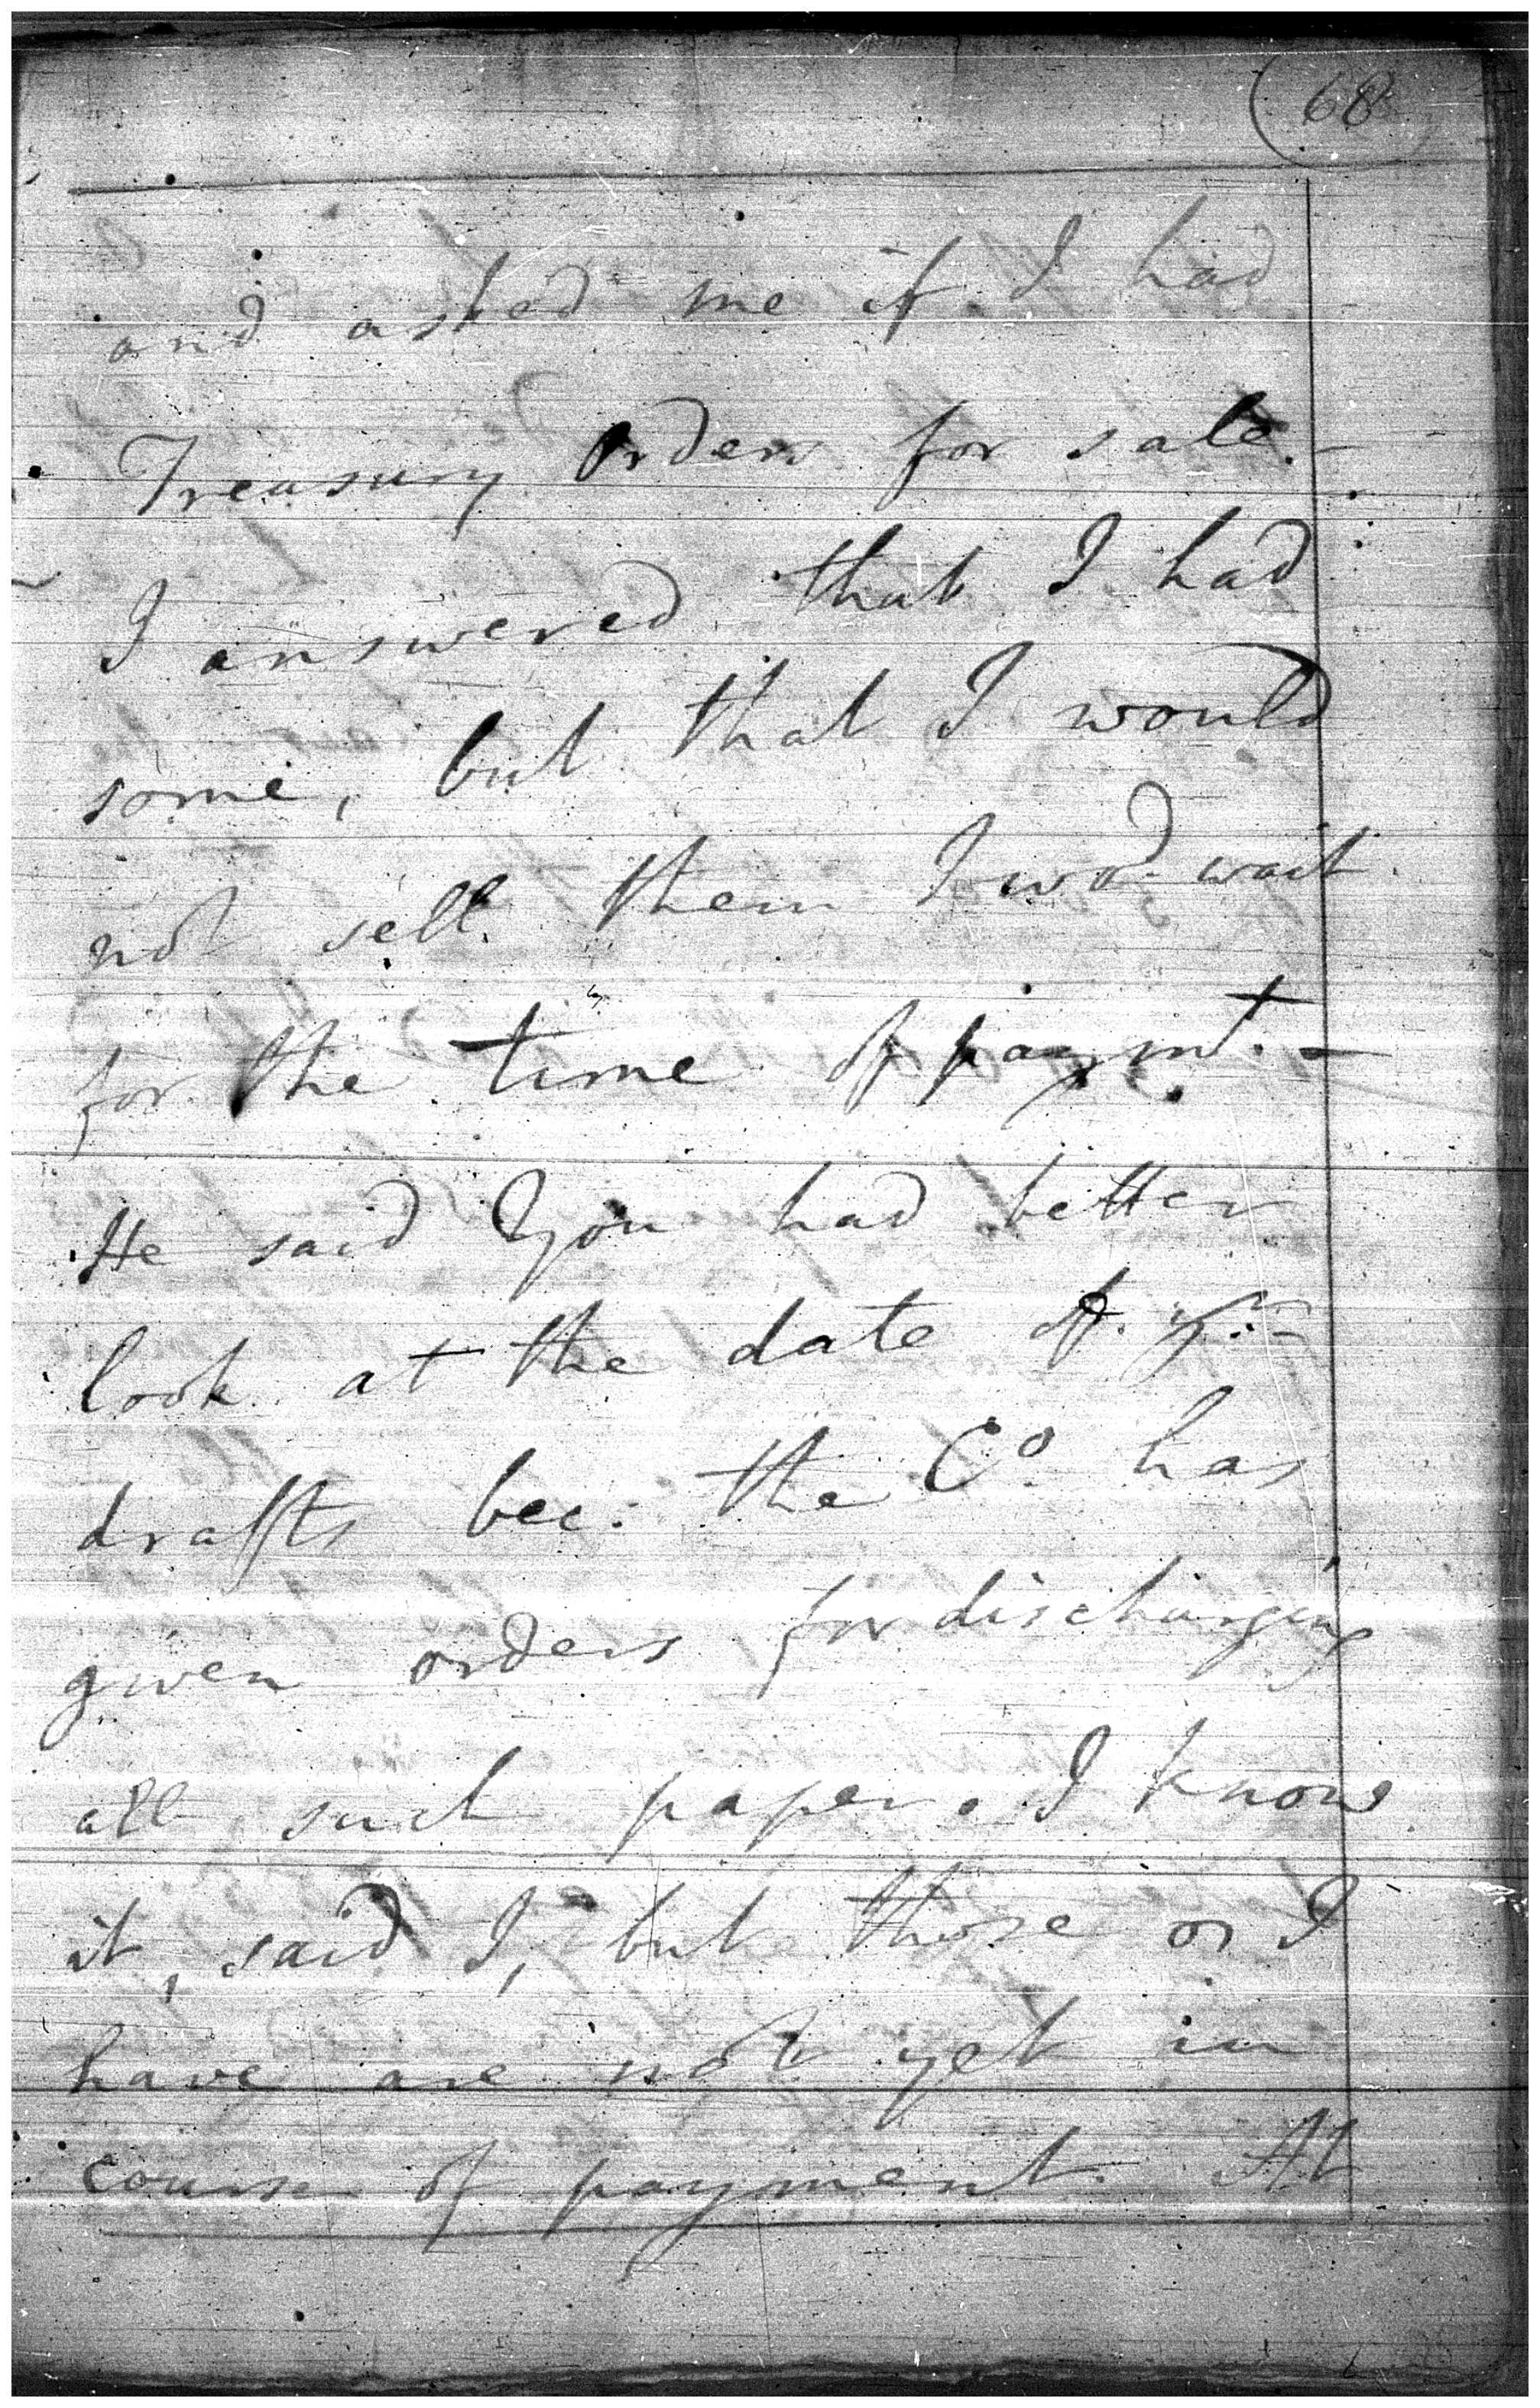 68
and asked me if I had
Treasury Orders for sale. —
I answered that I had
some, but that I would
not sell them I wod. wait
for the time of paymt. —
He said You had better
look at the date of yr.
drafts bec: the Co. has
given orders for discharging
all such paper. I know
it, said I, but those I
have are not yet in
course of payment. At